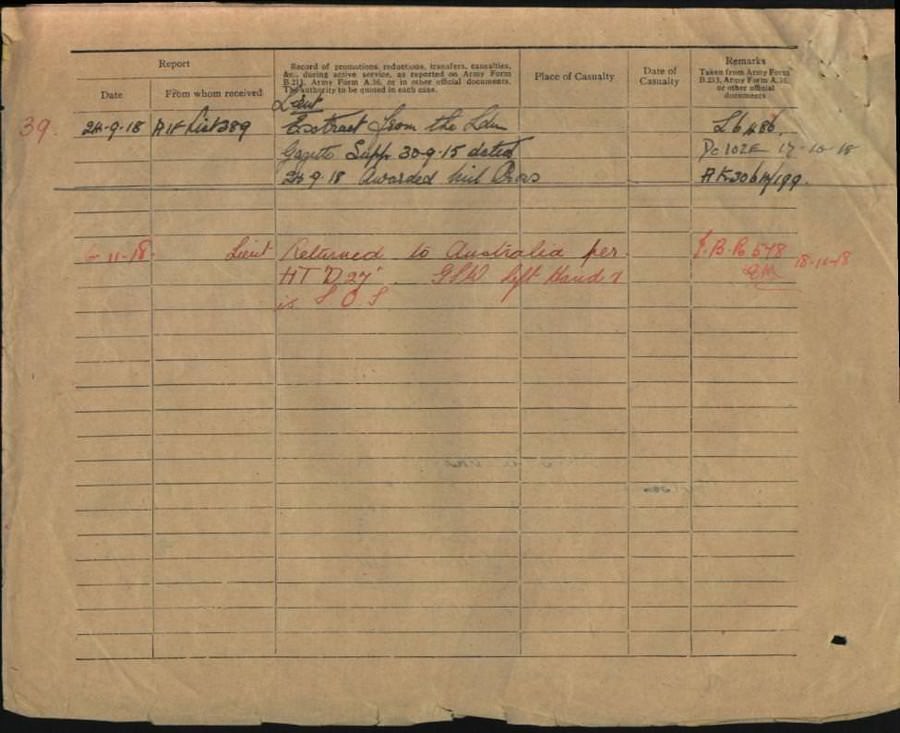 Report
Record of promotions, reductions, transfers, casualties,
&c., during active service, as reported on Army Form
B.213, Army Form A.36, or in other official documents.
The authority to be quoted in each case.
Place of Casualty
Date of
Casualty
Remarks
Taken from Army Form
B.213, Army Form A.36,
or other official
documents
Date
From whom received
Lieut
39. 24-9-18 AIF List 389 Extract from the Lon L6486
Gazette Supp. 30-9-15 dated 17-10-18
24-9-18 Awarded Mil Cross
11-18. Lieut Returned to Australia per 548
HT "D 27" GSW Left Hand 18-11-18